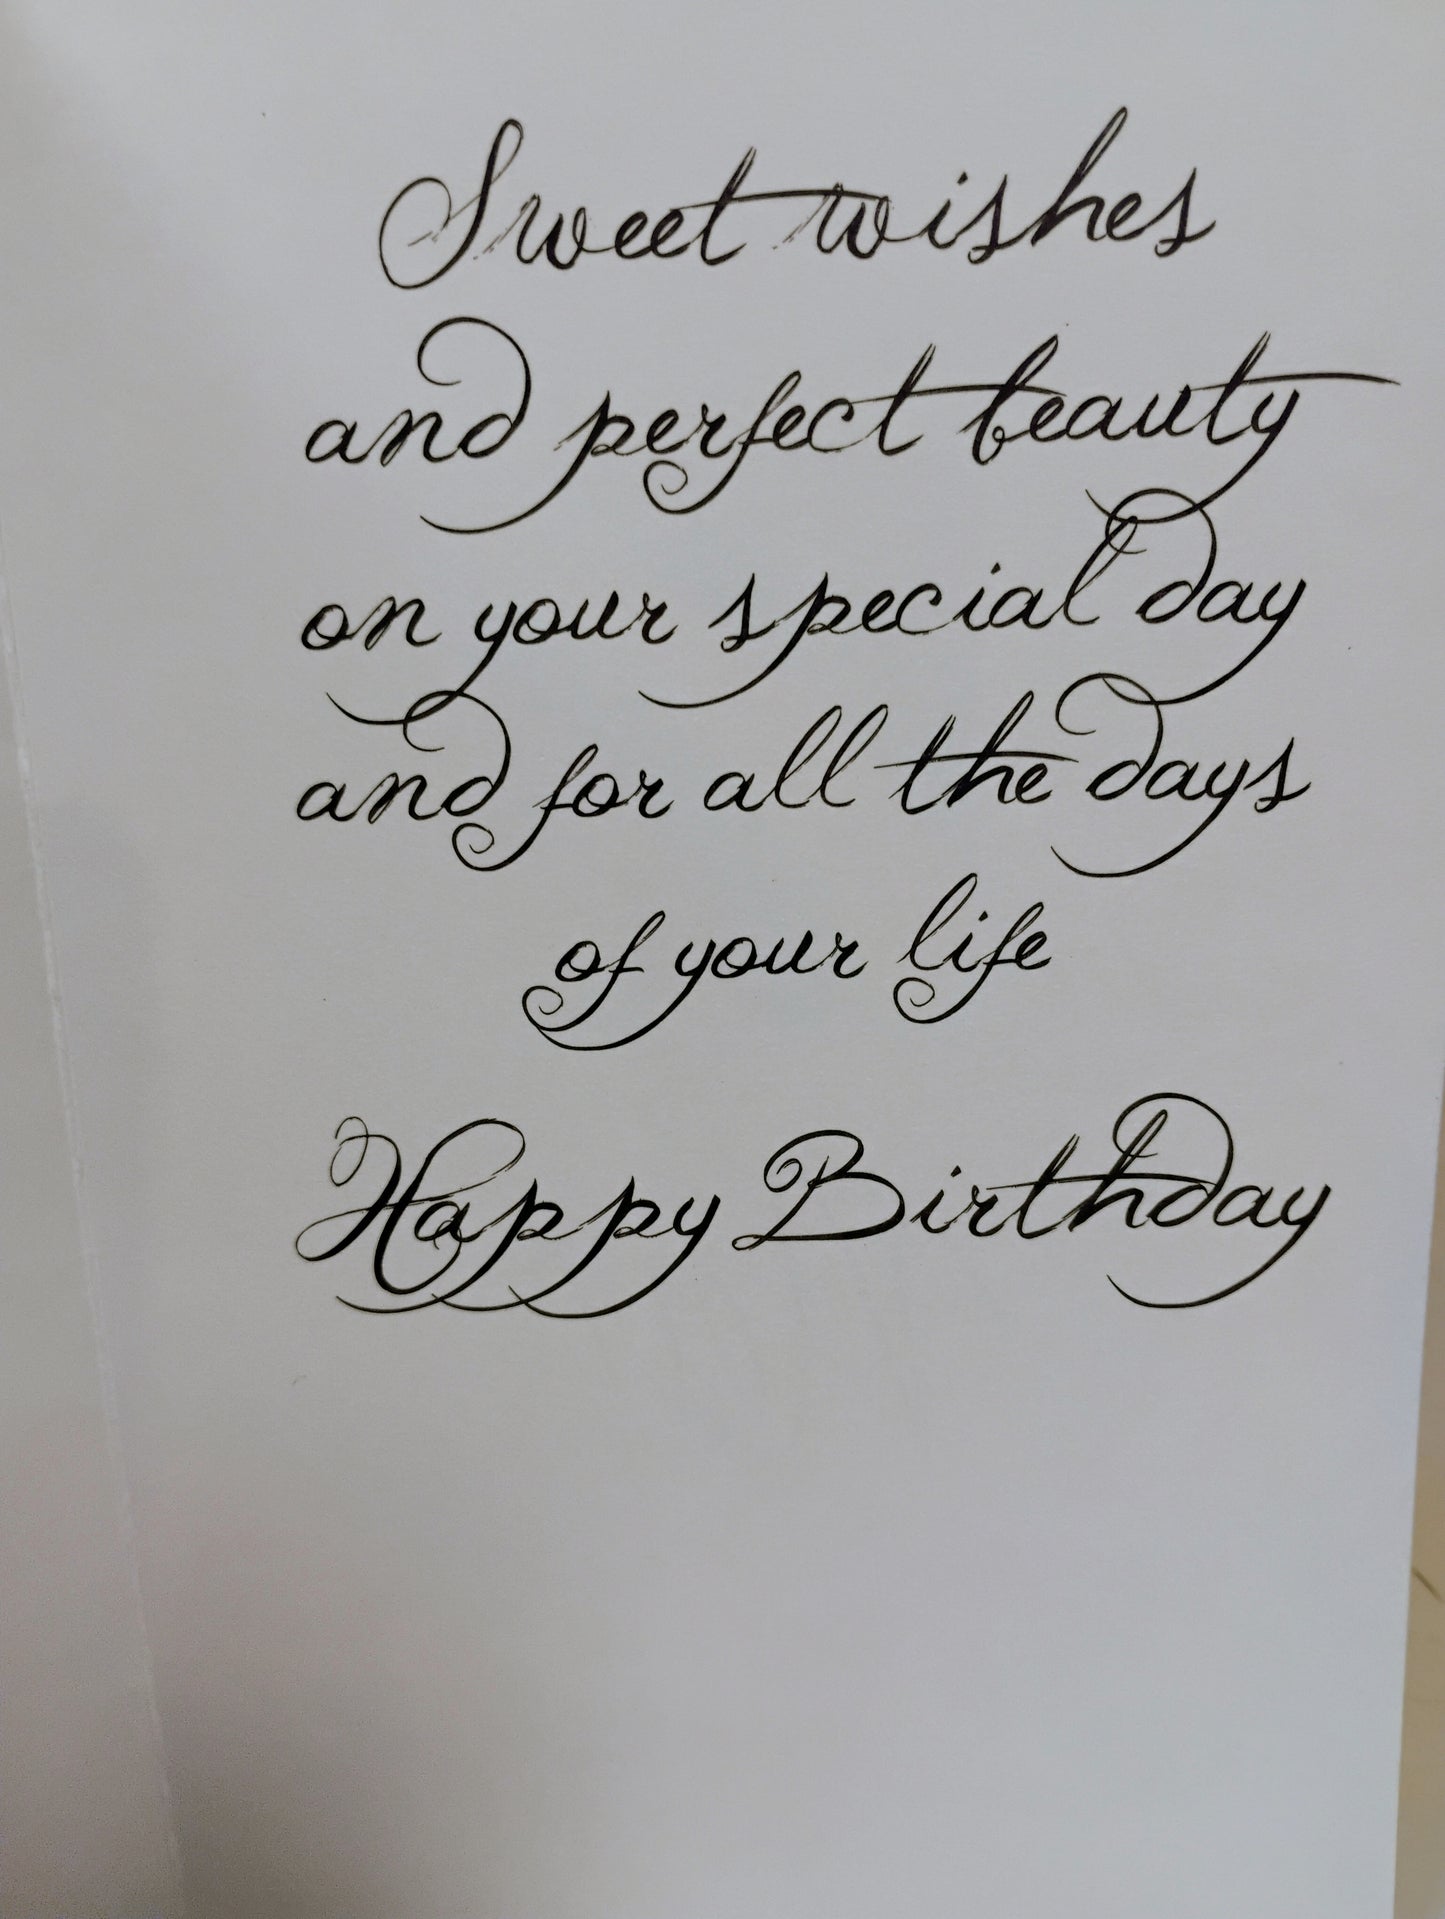 Sweet wishes
and perfect beauty
on your special day
and for all the days
of your life
Happy Birthday